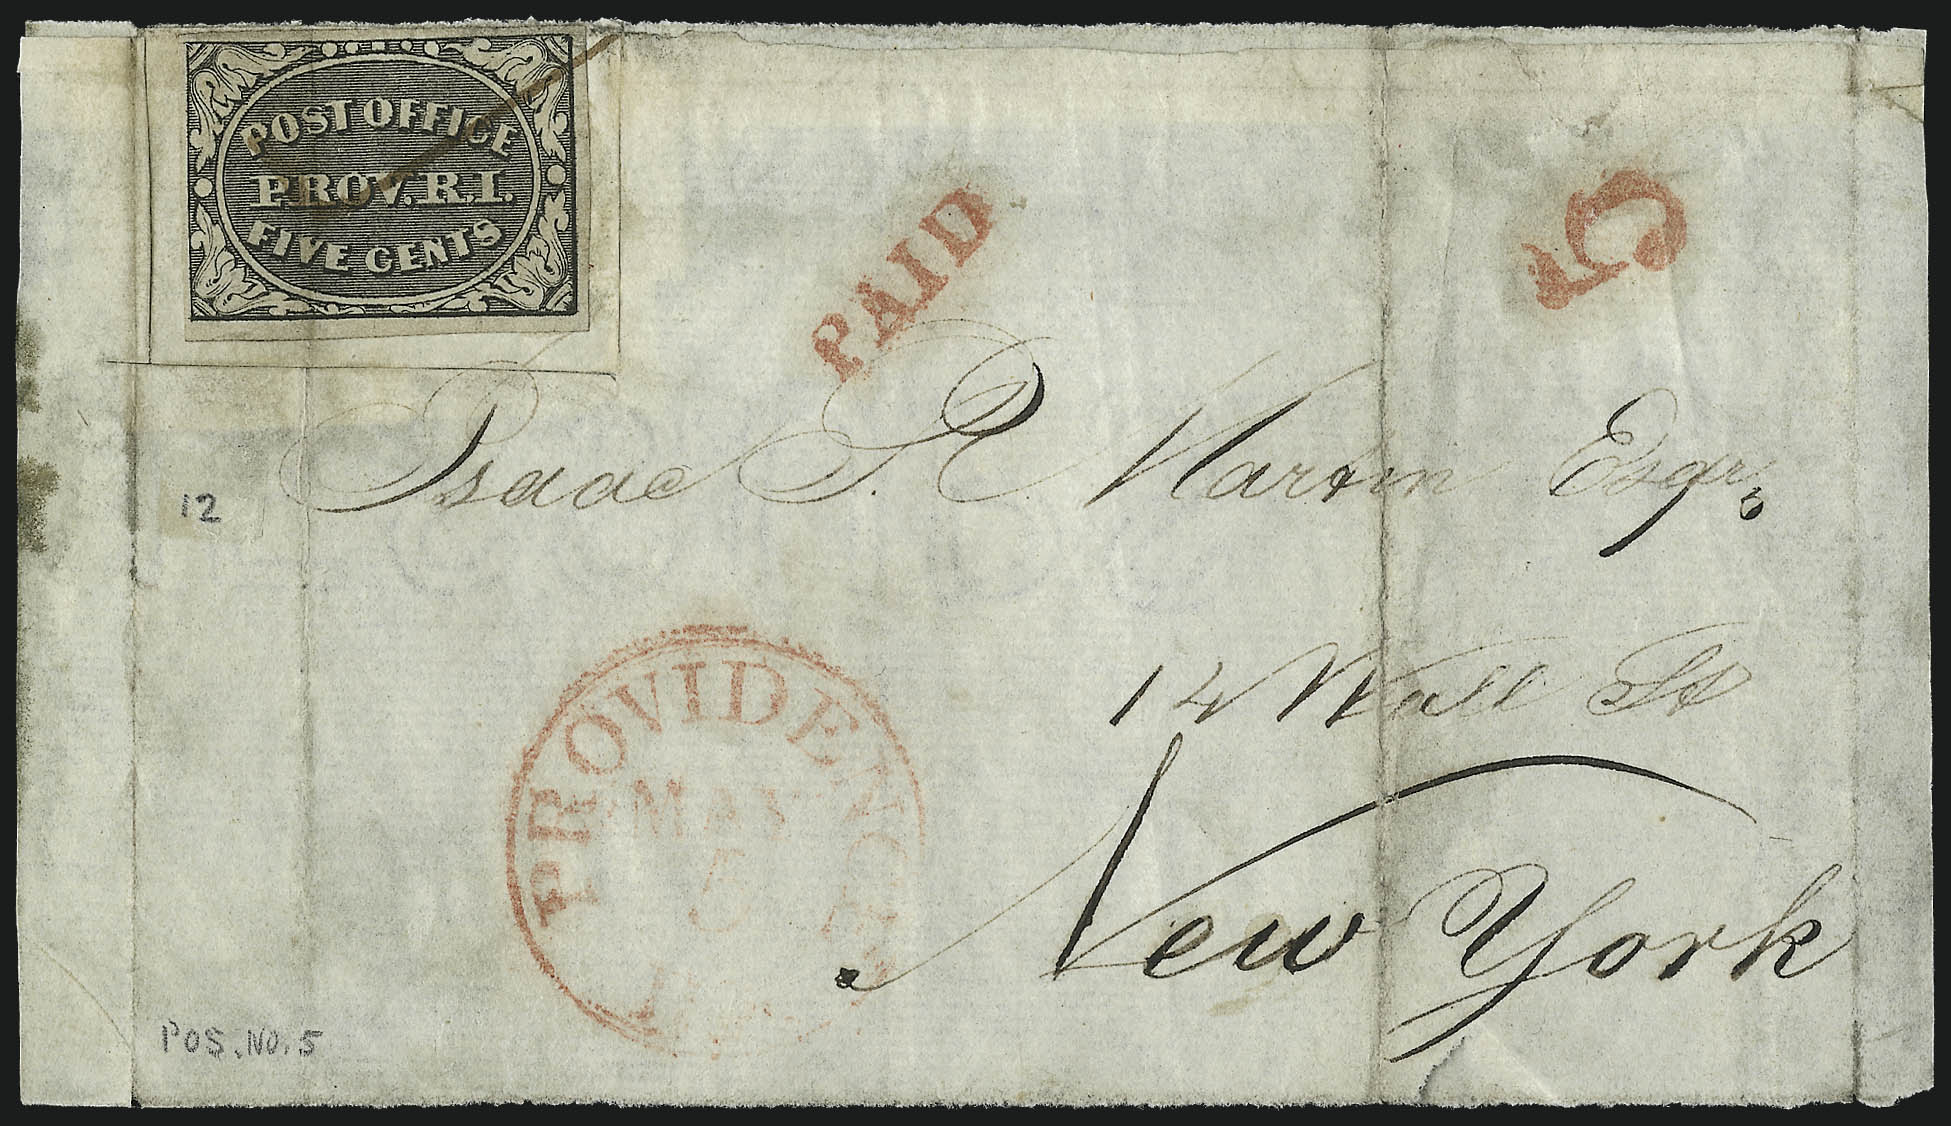 POST OFFICE
PROV. R.I.
FIVE CENTS
PAID
5
Isaac P. Martin Esqr,
12
14 Wall St
New York
PROVIDENCE
MAY
5
POS. NO. 5